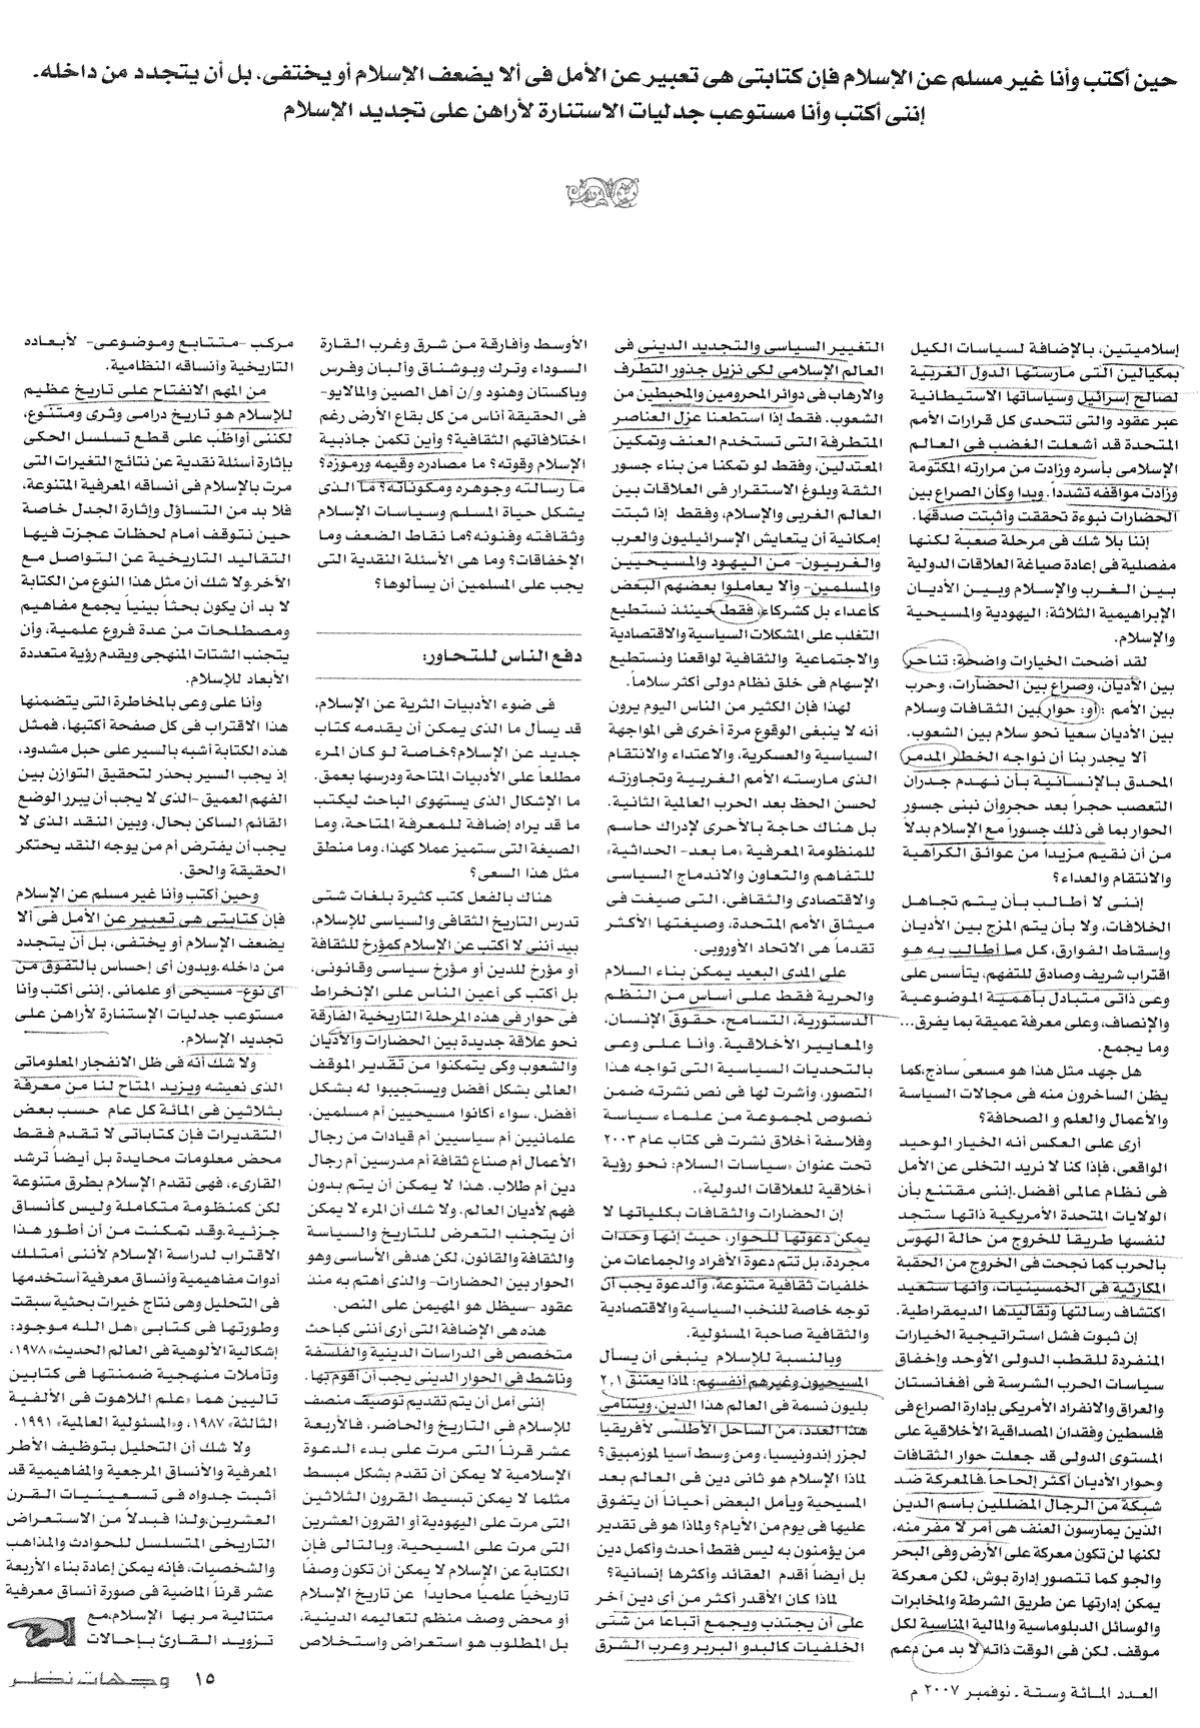 حين أكتب وأنا غير مسلم عن الإسلام فإن كتابتى هى تعبير عن الأمل فى ألا يضعف الإسلام أو يختفى، بل أن يتجدد من داخله.
إننى أكتب وأنا مستوعب جدليات الاستنارة لأراهن على تجديد الإسلام
إسلاميتين، بالإضافة لسياسات الكيل
بمكيالين التى مارستها الدول الغربية
لصالح إسرائيل وسياساتها الاستيطانية
عبر عقود والتى تتحدى كل قرارات الأمم
المتحدة قد أشعلت الغضب فى العالم
الإسلامى بأسره وزادت من مرارته المكتومة
وزادت مواقفه تشدداً. وبدا وكأن الصراع بين
الحضارات نبوءة تحققت وأثبتت صدقها.
إننا بلا شك فى مرحلة صعبة لكنها
مفصلية فى إعادة صياغة العلاقات الدولية
بين الغرب والإسلام وبين الأديان
الإبراهيمية الثلاثة: اليهودية والمسيحية
والإسلام.
لقد أضحت الخيارات واضحة: تناحر
بين الأديان، وصراع بين الحضارات، وحرب
بين الأمم : أو: حوار بين الثقافات وسلام
بين الأديان سعياً نحو سلام بين الشعوب.
ألا يجدر بنا أن نواجه الخطر المدمر
المحدق بالإنسانية بأن نهدم جدران
التعصب حجراً بعد حجروأن نبنى جسور
الحوار بما فى ذلك جسوراً مع الإسلام بدلاً
من أن نقيم مزيداً من عوائق الكراهية
والانتقام والعداء؟
إننى لا أطالب بأن يتم تجاهل
الخلافات، ولا بأن يتم المزج بين الأديان
وإسقاط الفوارق، كل ما أطالب به هو
اقتراب شريف وصادق للتفهم، يتأسس على
وعى ذاتى متبادل بأهمية الموضوعية
والإنصاف، وعلى معرفة عميقة بما يفرق...
وما يجمع.
هل جهد مثل هذا هو مسعى ساذج،كما
يظن الساخرون منه فى مجالات السياسة
والأعمال والعلم و الصحافة؟
أرى على العكس أنه الخيار الوحيد
الواقعى، فإذا كنا لا نريد التخلى عن الأمل
فى نظام عالمى أفضل.إننى مقتنع بأن
الولايات المتحدة الأمريكية ذاتها ستجد
لنفسها طريقا للخروج من حالة الهوس
بالحرب كما نجحت فى الخروج من الحقبة
المكارثية فى الخمسينيات، وأنها ستعيد
اكتشاف رسالتها وتقاليدها الديمقراطية.
إن ثبوت فشل استراتيجية الخيارات
المنفردة للقطب الدولى الأوحد وإخفاق
سياسات الحرب الشرسة فى أفغانستان
والعراق والانفراد الأمريكى بإدارة الصراع فى
فلسطين وفقدان المصداقية الأخلاقية على
المستوى الدولى قد جعلت حوار الثقافات
وحوار الأديان أكثر إلحاحاً.فالمعركة ضد
شبكة من الرجال المضللين باسم الدين
الذين يمارسون العنف هى أمر لا مفر منه،
لكنها لن تكون معركة على الأرض وفى البحر
والجو كما تتصور إدارة بوش، لكن معركة
يمكن إدارتها عن طريق الشرطة والمخابرات
والوسائل الدبلوماسية والمالية المناسبة لكل
موقف. لكن فى الوقت ذاته لا بد من دعم
التغيير السياسى والتجديد الدينى فى
العالم الإسلامى لكى نزيل جذور التطرف
والارهاب فى دوائر المحرومين والمحبطين من
الشعوب. فقط إذا استطعنا عزل العناصر
المتطرفة التى تستخدم العنف وتمكين
المعتدلين، وفقط لو تمكنا من بناء جسور
الثقة وبلوغ الاستقرار فى العلاقات بين
العالم الغربى والإسلام، وفقط إذا ثبتت
إمكانية أن يتعايش الإسرائيليون والعرب
والغربيون- من اليهود والمسيحيين
والمسلمين- وألا يعاملوا بعضهم البعض
كأعداء بل كشركاء، فقط حينئذ نستطيع
التغلب على المشكلات السياسية والاقتصادية
والاجتماعية والثقافية لواقعنا ونستطيع
الإسهام فى خلق نظام دولى أكثر سلاماً.
لهذا فإن الكثير من الناس اليوم يرون
أنه لا ينبغى الوقوع مرة أخرى فى المواجهة
السياسية والعسكرية، والاعتداء والانتقام
الذى مارسته الأمم الغربية وتجاوزته
لحسن الحظ بعد الحرب العالمية الثانية.
بل هناك حاجة بالأحرى لإدراك حاسم
للمنظومة المعرفية «ما بعد- الحداثية»
للتفاهم والتعاون والاندماج السياسى
والاقتصادى والثقافى، التى صيغت فى
ميثاق الأمم المتحدة، وصيغتها الأكثر
تقدماً هى الاتحاد الأوروبى.
على المدى البعيد يمكن بناء السلام
والحرية فقط على أساس من النظم
الدستورية، التسامح، حقوق الإنسان،
والمعايير الأخلاقية. وأنا على وعى
بالتحديات السياسية التى تواجه هذا
التصور، وأشرت لها فى نص نشرته ضمن
نصوص لمجموعة من علماء سياسة
وفلاسفة أخلاق نشرت فى كتاب عام ٢٠٠٣
تحت عنوان «سياسات السلام: نحو رؤية
أخلاقية للعلاقات الدولية».
إن الحضارات والثقافات بكلياتها لا
يمكن دعوتها للحوار، حيث إنها وحدات
مجردة، بل تتم دعوة الأفراد والجماعات من
خلفيات ثقافية متنوعة، والدعوة يجب أن
توجه خاصة للنخب السياسية والاقتصادية
والثقافية صاحبة المسئولية.
وبالنسبة للإسلام ينبغى أن يسأل
المسيحيون وغيرهم أنفسهم: لماذا يعتنق ٢,١
بليون نسمة فى العالم هذا الدين، ويتنامى
هذا العدد، من الساحل الأطلسى لأفريقيا
لجزر إندونيسيا، ومن وسط آسيا لموزمبيق؟
لماذا الإسلام هو ثانى دين فى العالم بعد
المسيحية ويأمل البعض أحياناً أن يتفوق
عليها فى يوم من الأيام؟ ولماذا هو فى تقدير
من يؤمنون به ليس فقط أحدث وأكمل دين
بل أيضاً أقدم العقائد وأكثرها إنسانية؟
لماذا كان الأقدر أكثر من أى دين آخر
على أن يجتذب ويجمع أتباعا من شتى
الخلفيات كالبدو البربر وعرب الشرق
الأوسط وأفارقة من شرق وغرب القارة
السوداء وترك وبوشناق وألبان وفرس
وباكستان وهنود و/ن أهل الصين والمالايو-
فى الحقيقة أناس من كل بقاع الأرض رغم
اختلافاتهم الثقافية؟ وأين تكمن جاذبية
الإسلام وقوته؟ ما مصادره وقيمه ورموزه؟
ما رسالته وجوهره ومكوناته؟ ما الذى
يشكل حياة المسلم وسياسات الإسلام
وثقافته وفنونه؟ما نقاط الضعف وما
الإخفاقات؟ وما هى الأسئلة النقدية التى
يجب على المسلمين أن يسألوها؟
دفع الناس للتحاور:
فى ضوء الأدبيات الثرية عن الإسلام،
قد يسأل ما الذى يمكن أن يقدمه كتاب
جديد عن الإسلام؟خاصة لو كان المرء
مطلعاً على الأدبيات المتاحة ودرسها بعمق.
ما الإشكال الذى يستهوى الباحث ليكتب
ما قد يراه إضافة للمعرفة المتاحة، وما
الصيغة التى ستميز عملا كهذا، وما منطق
مثل هذا السعى؟
هناك بالفعل كتب كثيرة بلغات شتى
تدرس التاريخ الثقافى والسياسى للإسلام،
بيد أننى لا أكتب عن الإسلام كمؤرخ للثقافة
أو مؤرخ للدين أو مؤرخ سياسى وقانونى،
بل أكتب كى أعين الناس على الإنخراط
فى حوار فى هذه المرحلة التاريخية الفارقة
نحو علاقة جديدة بين الحضارات والأديان
والشعوب وكى يتمكنوا من تقدير الموقف
العالمى بشكل أفضل ويستجيبوا له بشكل
أفضل، سواء أكانوا مسيحيين أم مسلمين،
علمانيين أم سياسيين أم قيادات من رجال
الأعمال أم صناع ثقافة أم مدرسين أم رجال
دين أم طلاب. هذا لا يمكن أن يتم بدون
فهم لأديان العالم. ولا شك أن المرء لا يمكن
أن يتجنب التعرض للتاريخ والسياسة
والثقافة والقانون، لكن هدفى الأساسى وهو
الحوار بين الحضارات- والذى أهتم به منذ
عقود -سيظل هو المهيمن على النص.
هذه هى الإضافة التى أرى أننى كباحث
متخصص فى الدراسات الدينية والفلسفة
وناشط فى الحوار الدينى يجب أن أقوم بها.
إننى آمل أن يتم تقديم توصيف منصف
للإسلام فى التاريخ والحاضر، فالأربعة
عشر قرناً التى مرت على بدء الدعوة
الإسلامية لا يمكن أن تقدم بشكل مبسط
مثلما لا يمكن تبسيط القرون الثلاثين
التى مرت على اليهودية أو القرون العشرين
التى مرت على المسيحية، وبالتالى فإن
الكتابة عن الإسلام لا يمكن أن تكون وصفاً
تاريخياً علمياً محايداً عن تاريخ الإسلام
أو محض وصف منظم لتعاليمه الدينية،
بل المطلوب هو استعراض واستخلاص
مركب -متتابع وموضوعى- لأبعاده
التاريخية وأنساقه النظامية.
من المهم الانفتاح على تاريخ عظيم
للإسلام هو تاريخ درامى وثرى ومتنوع،
لكننى أواظب على قطع تسلسل الحكى
بإثارة أسئلة نقدية عن نتائج التغيرات التى
مرت بالإسلام فى أنساقه المعرفية المتنوعة،
فلا بد من التساؤل وإثارة الجدل خاصة
حين نتوقف أمام لحظات عجزت فيها
التقاليد التاريخية عن التواصل مع
الآخر.ولا شك أن مثل هذا النوع من الكتابة
لا بد أن يكون بحثاً بينياً يجمع مفاهيم
ومصطلحات من عدة فروع علمية، وأن
يتجنب الشتات المنهجى ويقدم رؤية متعددة
الأبعاد للإسلام.
وأنا على وعى بالمخاطرة التى يتضمنها
هذا الاقتراب فى كل صفحة أكتبها، فمثل
هذه الكتابة أشبه بالسير على حبل مشدود،
إذ يجب السير بحذر لتحقيق التوازن بين
الفهم العميق -الذى لا يجب أن يبرر الوضع
القائم الساكن بحال، وبين النقد الذى لا
يجب أن يفترض أم من يوجه النقد يحتكر
الحقيقة والحق.
وحين أكتب وأنا غير مسلم عن الإسلام
فإن كتابتى هى تعبير عن الأمل فى ألا
يضعف الإسلام أو يختفى، بل أن يتجدد
من داخله.وبدون أى إحساس بالتفوق من
أى نوع- مسيحى أو علمانى. إننى أكتب وأنا
مستوعب جدليات الإستنارة لأراهن على
تجديد الإسلام.
ولا شك أنه فى ظل الانفجار المعلوماتى
الذى نعيشه ويزيد المتاح لنا من معرفة
بثلاثين فى المائة كل عام حسب بعض
التقديرات فإن كتاباتى لا تقدم فقط
محض معلومات محايدة بل أيضاً ترشد
القارىء، فهى تقدم الإسلام بطرق متنوعة
لكن كمنظومة متكاملة وليس كأنساق
جزئية.وقد تمكنت من أن أطور هذا
الاقتراب لدراسة الإسلام لأننى أمتلك
أدوات مفاهيمية وأنساق معرفية أستخدمها
فى التحليل وهى نتاج خبرات بحثية سبقت
وطورتها فى كتابى «هل الله موجود:
إشكالية الألوهية فى العالم الحديث» ١٩٧٨،
وتأملات منهجية ضمنتها فى كتابين
تاليين هما «علم اللاهوت فى الألفية
الثالثة» ١٩٨٧، و«المسئولية العالمية» ١٩٩١.
ولا شك أن التحليل بتوظيف الأطر
المعرفية والأنساق المرجعية والمفاهيمية قد
أثبت جدواه فى تسعينيات القرن
العشرين،ولذا فبدلاً من الاستعراض
التاريخى المتسلسل للحوادث والمذاهب
والشخصيات، فإنه يمكن إعادة بناء الأربعة
عشر قرناً الماضية فى صورة أنساق معرفية
متتالية مر بها الإسلام،مع
تزويد القارئ بإحالات
العدد المائة وستة ـ نوفمبر ٢٠٠٧ م
١٥ وجهات نظر